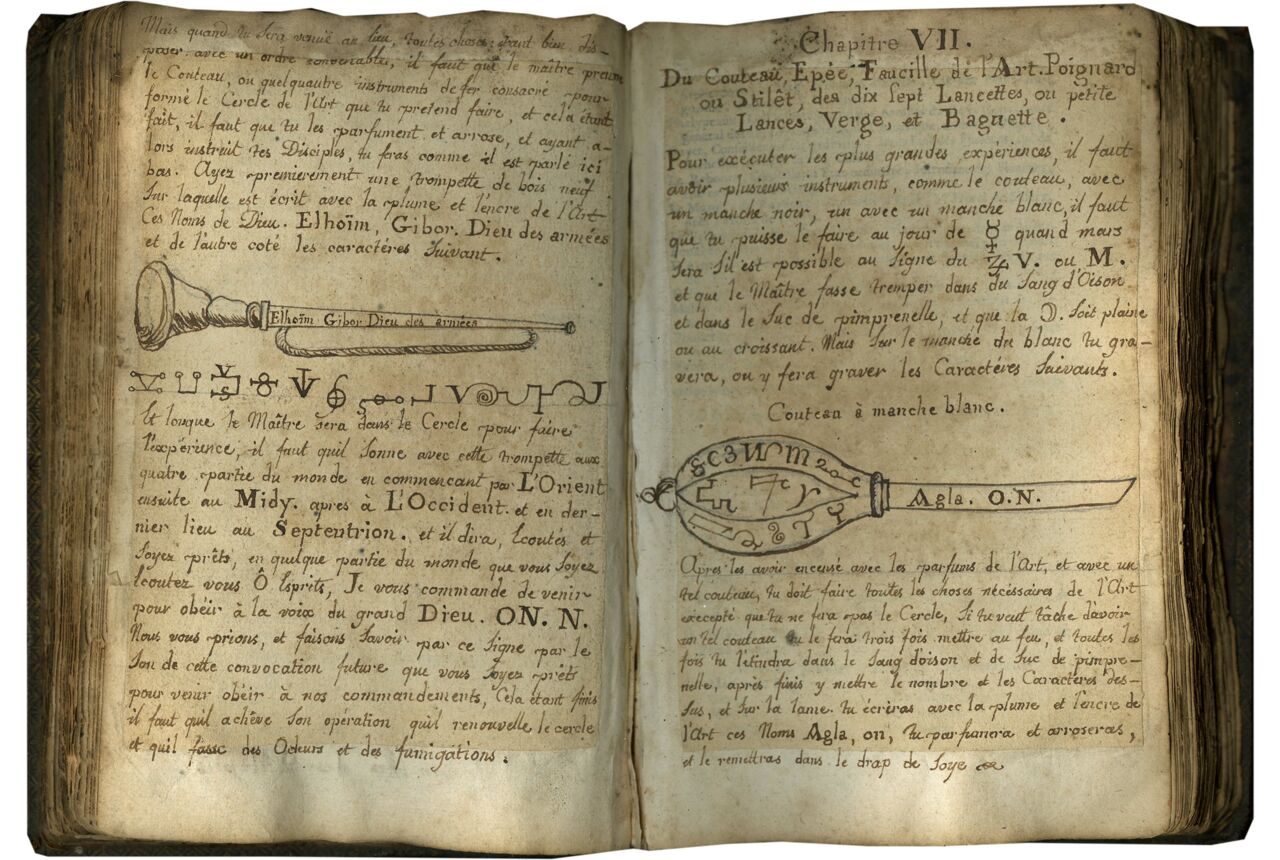 Mais quand tu sera venue au lieu, toutes choses étant bien dis-
poser avec un ordre convenable, il faut que le maître prenne
le Couteau, ou quelquautre instruments de fer consacré pour
formé le Cercle de l'Art que tu pretend faire, et cela étant
fait, il faut que tu les parfument et arrose, et ayant a-
lors instruit tes Disciples, tu feras comme il est parlé ici
bas. Ayez premierement une trompette de bois neuf
sur laquelle est écrit avec la plume et l'encre de l'Art
Ces Noms de Dieu. Elhoïm, Gibor. Dieu des armées
et de l'autre coté les caractéres suivant.
Elhoïm Gibor Dieu des armées
Et lorsque le Maître sera dans le Cercle pour faire
l'expérience, il faut quil sonne avec cette trompette aux
quatre partie du monde en commencant par L'Orient
ensuite au Midy. après à L'Occident. et en der-
nier lieu au Septentrion. et il dira, Ecoutés et
soyez prêts, en quelque partie du monde que vous soyez
Ecoutez vous Ô Esprits, Je vous commande de venir
pour obéir à la voix du grand Dieu. ON. N.
Nous vous prions, et faisons savoir par ce signe par le
son de cette convocation future que vous soyez prêts
pour venir obéir à nos commandements, Cela étant finis
il faut quil achêve son opération quil renouvelle le cercle
et quil fasse des Odeurs et des fumigations.
Chapitre VII.
Du Couteau, Epée, Faucille de l'Art. Poignard
ou Stilêt, des dix sept Lancettes, ou petite
Lances, Verge, et Baguette.
Pour exécuter les plus grandes expériences, il faut
avoir plusieurs instruments, comme le couteau, avec
un manche noir, un avec un manche blanc, il faut
que tu puisse le faire au jour de ☿ quand mars
sera s'il est possible au signe du V. ou M.
et que le Maître fasse tremper dans du sang d'Oison
et dans le suc de pimprenelle, et que la ☽. soit plaine
ou au croissant. Mais sur le manche du blanc tu gra-
vera, ou y fera graver les Caractéres suivants.
Couteau à manche blanc.
Agla. O.N.
Après les avoir encensé avec les parfums de l'Art, et avec un
tel couteau, tu doit faire toutes les choses nécessaires de l'Art
excepté que tu ne fera pas le Cercle, Si tu veut tâche d'avoir
un tel couteau tu le fera trois fois mettre au feu, et toutes les
fois tu l'étindra dans le sang d'oison et de suc de pimpre-
nelle, après finis y mettre le nombre et les Caractéres des-
sus, et sur la lame tu écrièras avec la plume et l'encre de
l'Art ces Noms Agla, on, tu parfumera et arroseras,
et le remettras dans le drap de soye